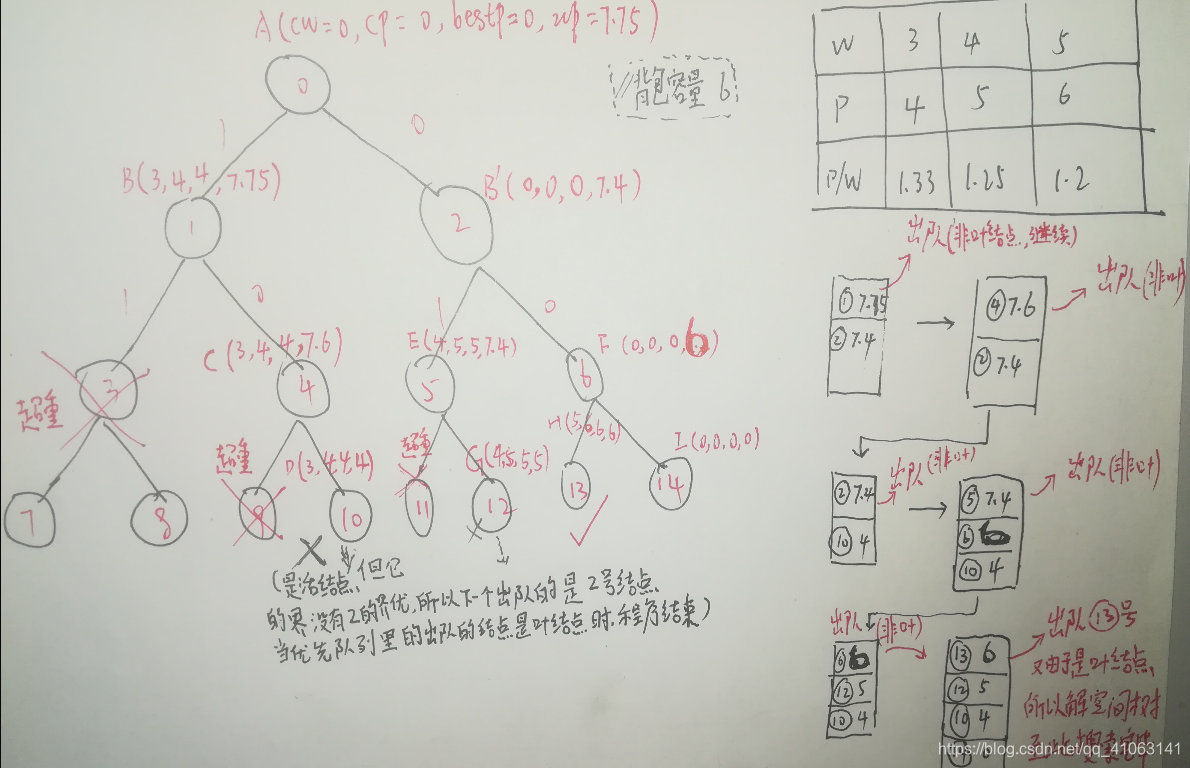 A(cw=0, cp=0, bestp=0, up=7.75)
//背包容量 6
0
1
0
B(3,4,4,7.75)
B'(0,0,0,7.4)
1
2
1
0
1
0
C(3,4,4,7.6)
E(4,5,5,7.4)
F(0,0,0,6)
3
4
5
6
超重
超重
D(3,4,4,4)
超重
G(4,5,5,5)
H(5,6,6,6)
I(0,0,0,0)
7
8
9
10
11
12
13
14
(是活结点,但它
的界没有2的界优,所以下一个出队的是2号结点.
当优先队列里的出队的结点是叶结点时,程序结束)
W 3 4 5
P 4 5 6
P/W 1.33 1.25 1.2
出队(非叶结点,继续)
① 7.75
② 7.4
出队(非叶)
④ 7.6
② 7.4
出队(非叶)
② 7.4
⑩ 4
出队(非叶)
⑤ 7.4
⑥ 6
⑩ 4
出队(非叶)
⑥ 6
⑫ 5
⑩ 4
⑬ 6
⑫ 5
⑩ 4
出队⑬号
又由于是叶结点,
所以解空间树
https://blog.csdn.net/qq_41063141